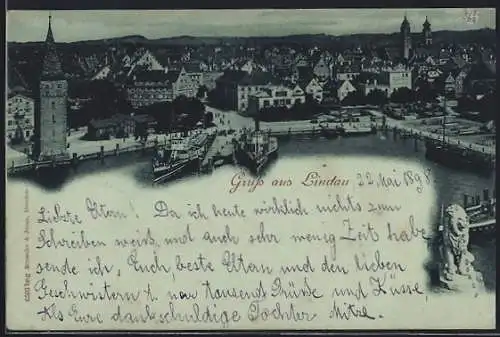 Gruß aus Lindau 22. Mai 1898.
Liebste Eltern! Da ich heute wirklich nichts zum
Schreiben weiß und auch sehr wenig Zeit habe
sende ich, Euch, beste Eltern und den lieben
Geschwistern nur tausend Grüße und Küsse,
Als Eure dankschuldige Tochter